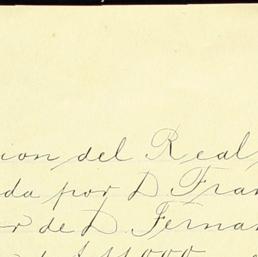 ion del Real
da por D Fran
or de D. Fernan
$ 11000